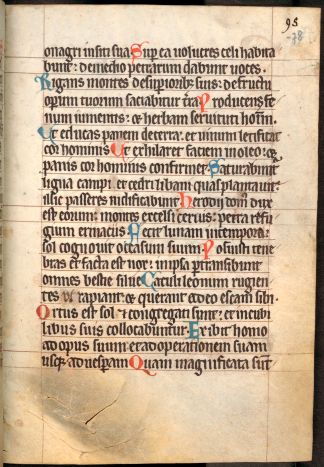 95
78
onagri in siti sua Sup ea volucres celi habita
bunt: de medio petrarum dabunt voces.
Rigans montes de supiorib; suis: de fructu
opum tuorum saciabitur tra Producens fe
num iumentis: et herbam servituti hoım.
Ut educas panem de terra: et vinum letificat
cor hominis Ut exhilaret faciem in oleo: et
panis cor hominis confirmet. Saturabunt
ligna campi et cedri libani quas plantavit:
illic passeres nidificabunt Herodii dom9 dux
est eorum: montes excelsi cervis: petra refu
gium ernaciis Fecit lunam in tempora:
sol cognovit occasum suum. Posuisti tene
bras et facta est nox: in ipsa ptransibunt
omnes bestie silve Catuli leonum rugien
tes ut rapiant: et querant a deo escam sibi.
Ortus est sol et congregati sunt: et in cubi
libus suis collocabuntur. Exibit homo
ad opus suum: et ad operationem suam
usq; ad vespam Quam magnificata sūt